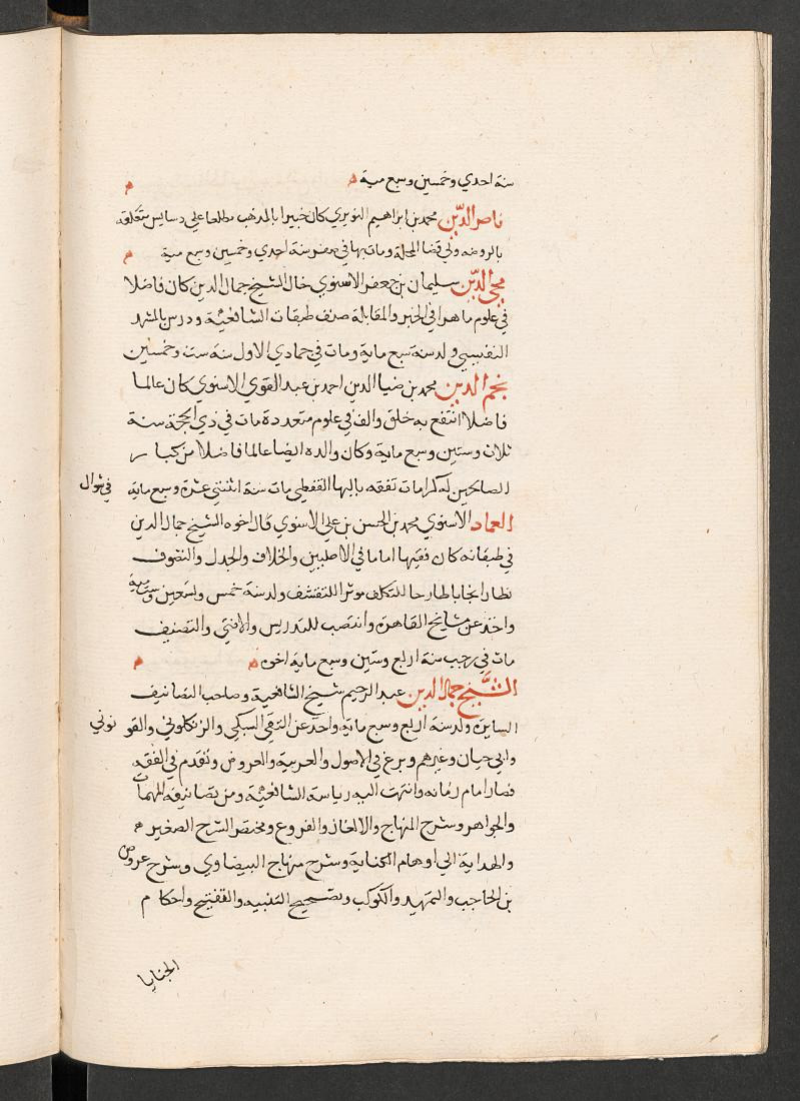 سنة احدي وخمسين وسبع مية م م
ناصر الدين محمد بن ابراهيم النويري كان خبيرا بالمذهب مطلعا علي دسايس متعلقه
بالروضه ولي قضا المحلة ومات بها في صفر سنة احدي وخمسين وسبع مية م
محيي الدين سليمان بن جعفر الاسنوي خال الشيخ جمال الدين كان فاضلا
في علوم ماهرا في الجبر والمقابلة صنف طبقات الشافعية ودرس بالمشهد
النفيسي ولد سنة سبع ماية ومات في جمادي الاول سنة ست وخمسين
نجم الدين محمد بن ضيا الدين احمد بن عبد القوي الاسنوي كان عالما
فاضلا انتفع به خلق والف في علوم متعددة مات في ذي الحجة سنة
ثلاث وستين وسبع ماية وكان والده ايضا عالما فاضلا من كبار
الصالحين له كرامات تفقه بالبها القفطي مات سنة اثنتي عشرة وسبع ماية في شوال
العماد الاسنوي محمد بن الحسن بن علي الاسنوي قال اخوه الشيخ جمال الدين
في طبقاته كان فقيها اماما في الاصلين والخلاف والجدل والتصوف
نظارا بحاثا طارحا للتكلف موثرا للتقشف ولد سنة خمس وتسعين وستمية
واخذ عن مشايخ القاهرة وانتصب للتدريس والافتي والتصنيف
مات في رجب سنة اربع وستين وسبع ماية اخوه م م
الشيخ جمال الدين عبد الرحيم شيخ الشافعية وصاحب التصانيف
السايرة ولد سنة اربع وسبع ماية واخذ عن التقي السبكي والزنكلوني والقونوي
وابي حيان وغيرهم وبرع في الاصول والعربية والعروض وتقدم في الفقه
فصار امام زمانه وانتهت اليه رياسة الشافعية ومن تصانيفه المهمات
والجواهر وشرح المنهاج والالغاز والفروع ومختصر الشرح الصغير م
والهداية الي اوهام الكفاية وشرح منهاج البيضاوي وشرح عروض
بن الحاجب والتمهيد والكوكب وتصحيح التنبيه والتنقيح واحكام
الخنايا